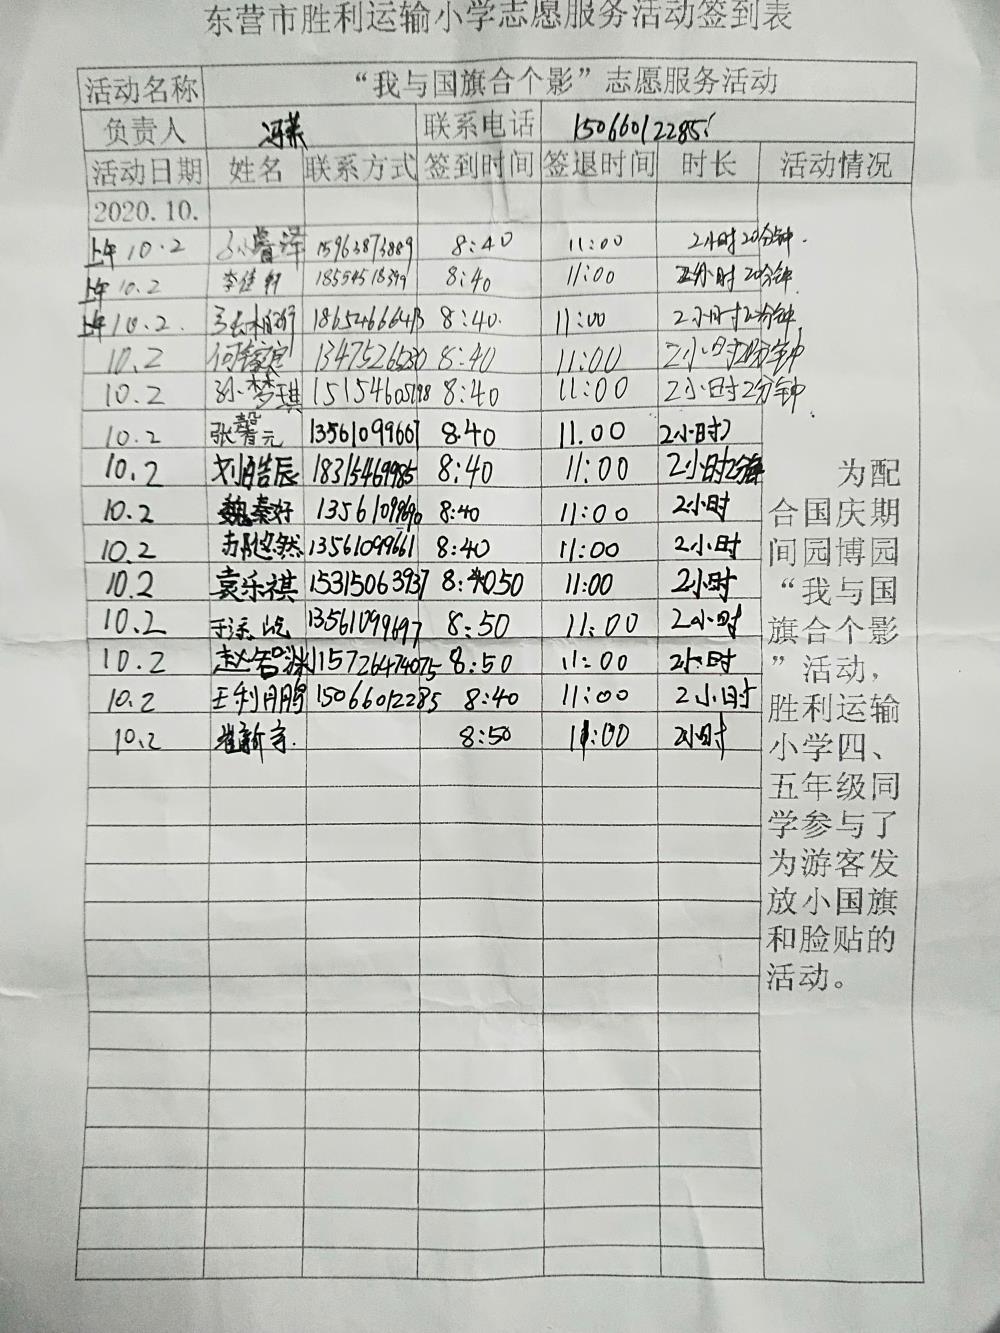 东营市胜利运输小学志愿服务活动签到表
活动名称 “我与国旗合个影”志愿服务活动
负责人 冯英 联系电话 15066012285
活动日期 姓名 联系方式 签到时间 签退时间 时长 活动情况
2020.10.
上午10.2 15963873889 8:40 11:00 2小时20分钟.
上午10.2 李佳轩 8:40 11:00 2小时20分钟
上午10.2. 8:40. 11:00 2小时20分钟
10.2 8:40 11:00 2小时20分钟
10.2 孙梦琪 15154605198 8:40 11:00 2小时2分钟
10.2 张馨元 13561099667 8.40 11.00 2小时
10.2 刘皓辰 18315469985 8:40 11:00 2小时
10.2 魏秦好 8:40 11:00 2小时
10.2 13561099661 8:40 11:00 2小时
10.2 袁乐祺 15315063937 8:4050 11:00 2小时
10.2 13561099697 8:50 11:00 2小时
10.2 赵智渊 15726474075 8:50 11:00 2小时
10.2 王利鹏 15066012285 8:40 11:00 2小时
10.2 崔新宇. 8:50 11:00 2小时
为配
合国庆期
间园博园
“我与国
旗合个影
”活动,
胜利运输
小学四、
五年级同
学参与了
为游客发
放小国旗
和脸贴的
活动。